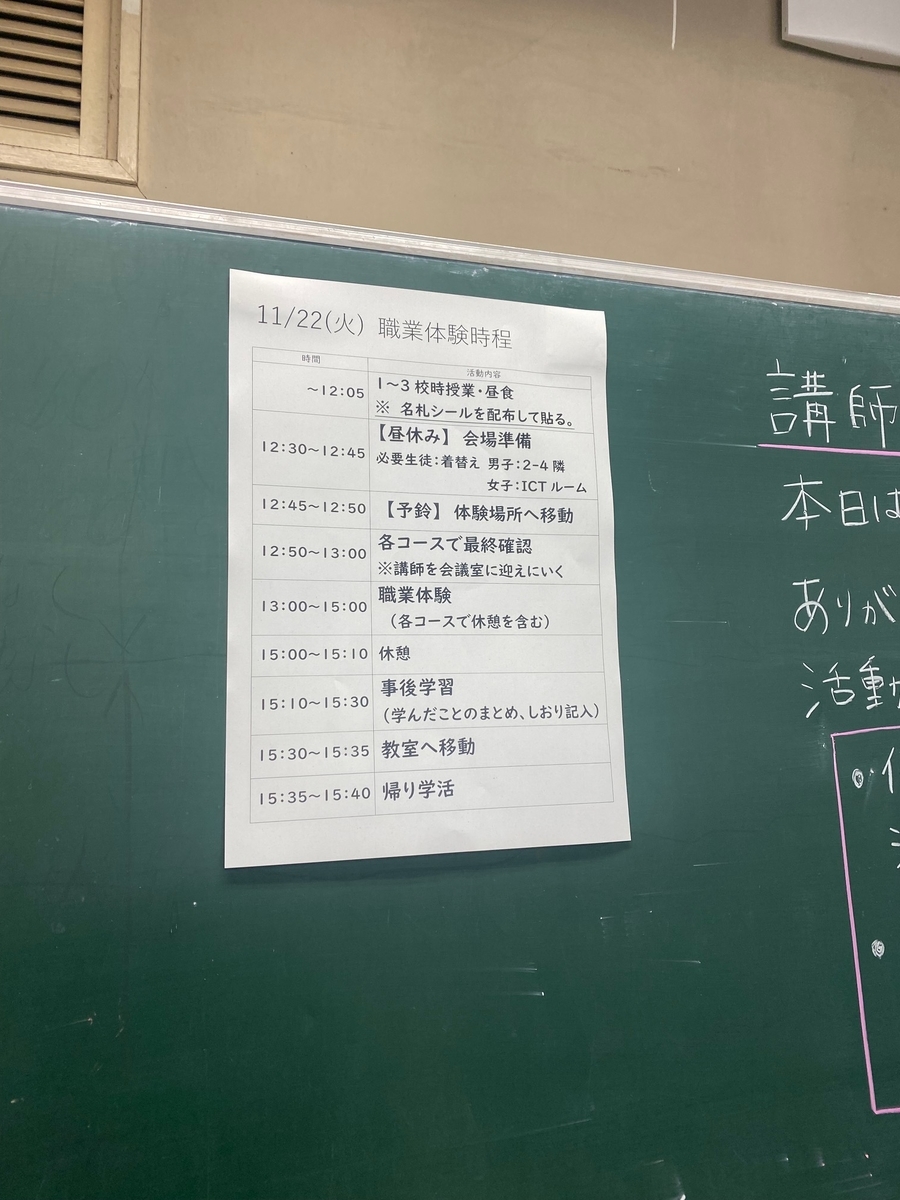 11/22(火) 職業体験時程
時間 活動内容
～12:05 1～3 校時授業・昼食
※ 名札シールを配布して貼る。
12:30～12:45 【昼休み】 会場準備
必要生徒：着替え 男子：2-4 隣
女子：ICT ルーム
12:45～12:50 【予鈴】 体験場所へ移動
12:50～13:00 各コースで最終確認
※講師を会議室に迎えにいく
13:00～15:00 職業体験
（各コースで休憩を含む）
15:00～15:10 休憩
15:10～15:30 事後学習
（学んだことのまとめ、しおり記入）
15:30～15:35 教室へ移動
15:35～15:40 帰り学活
講師
本日は
ありが
活動